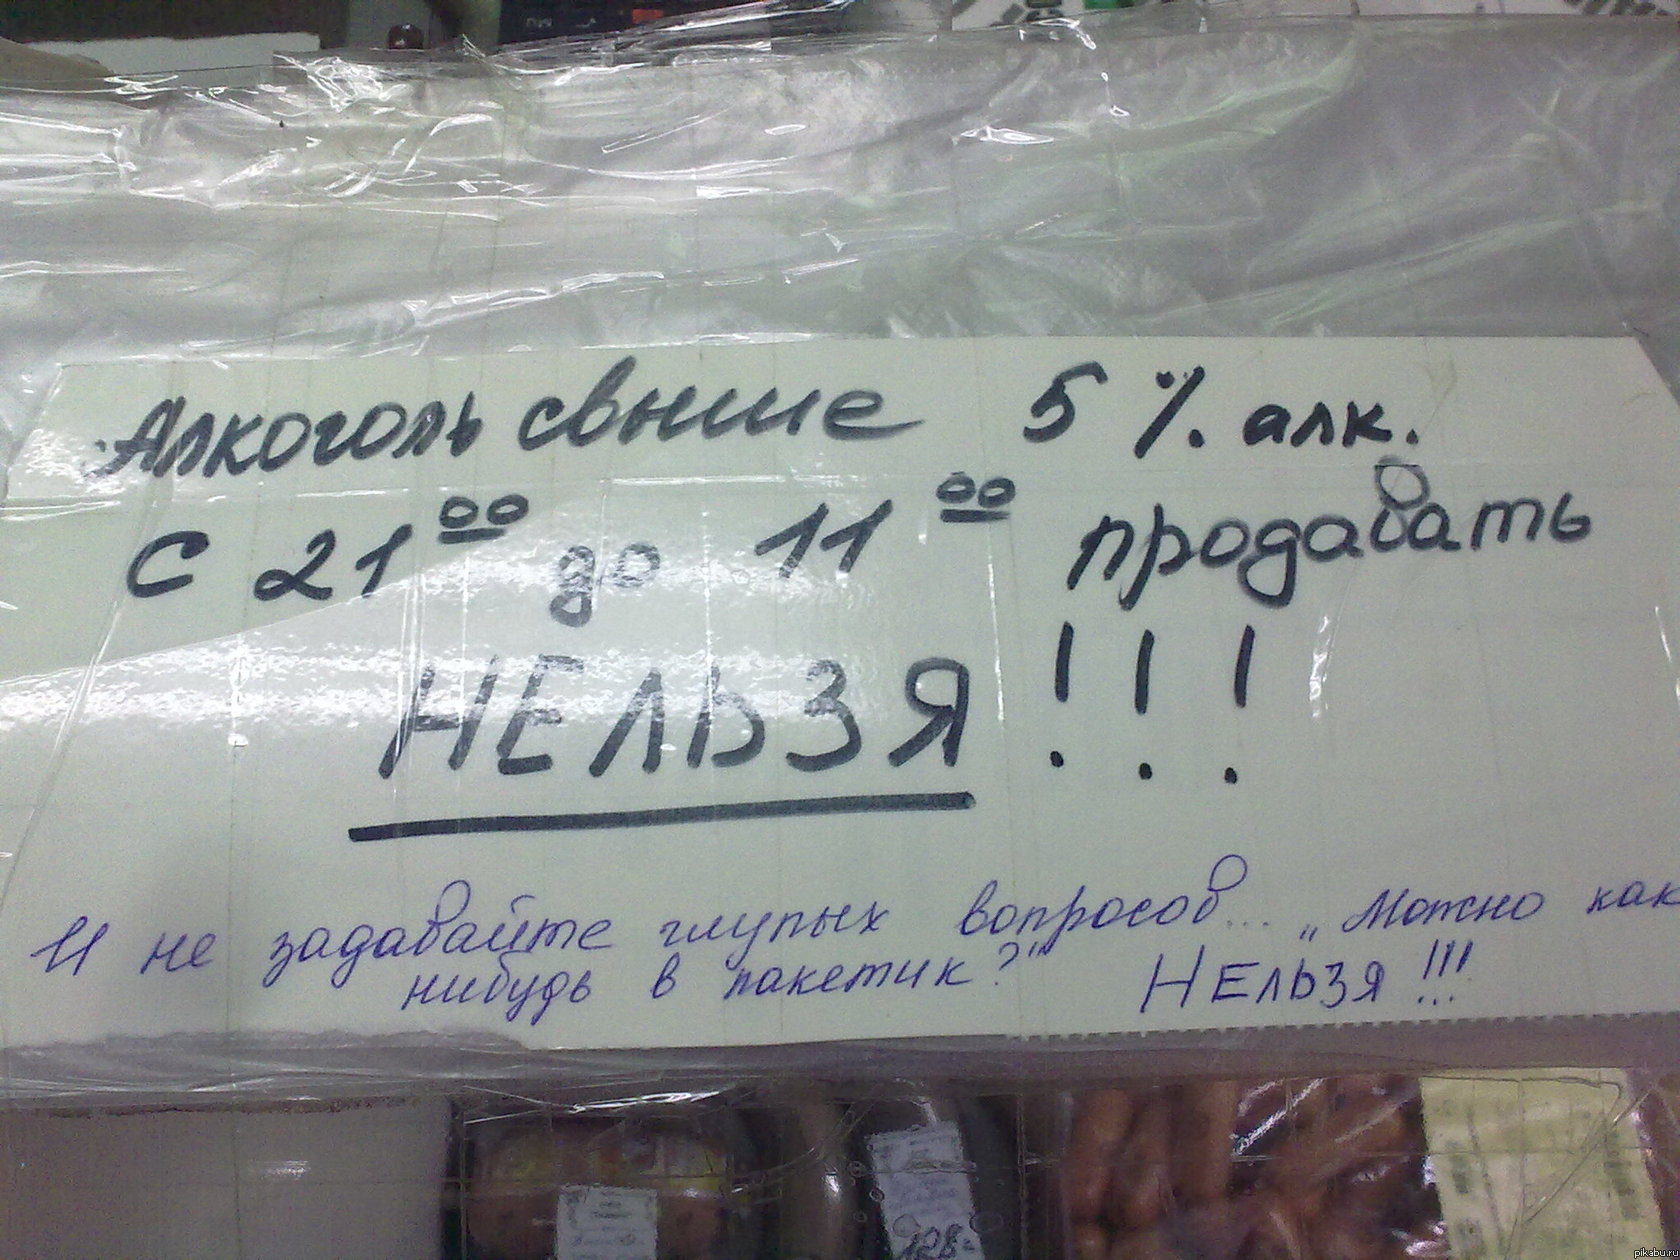 Алкоголь свыше 5 % алк.
С 21 00 до 11 00 продавать
НЕЛЬЗЯ !!!
И не задавайте глупых вопросов... „Можно как
нибудь в пакетик?" НЕЛЬЗЯ !!!
128=
pikabu.ru